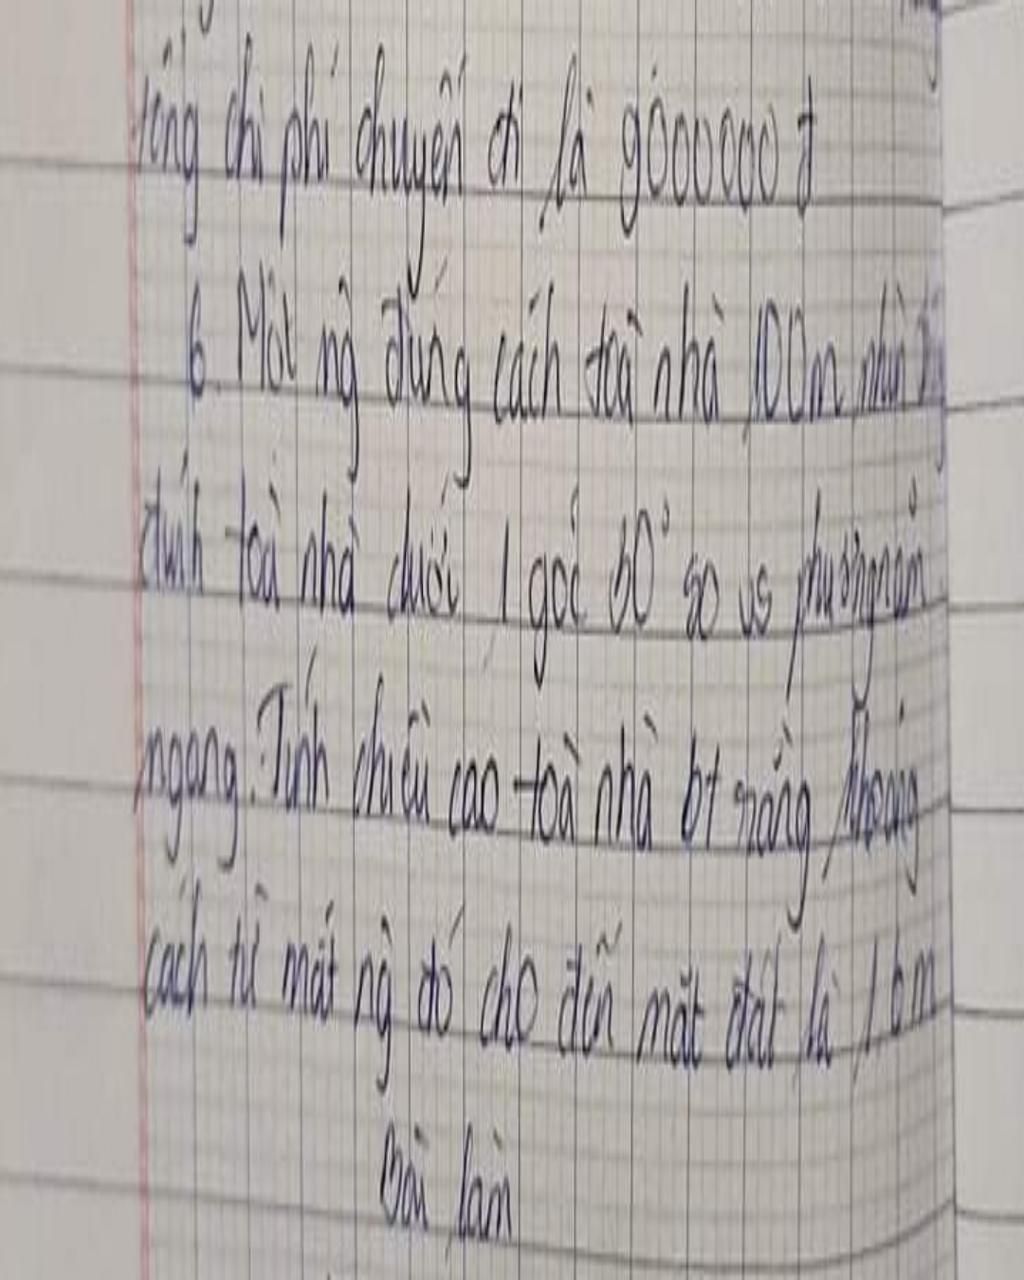 tổng chi phí chuyến đi là 9000000 đ
6. Một ng đứng cách toà nhà 100m nhìn
đỉnh toà nhà dưới 1 góc 60° so vs phương nằm
ngang. Tính chiều cao toà nhà bt rằng khoảng
cách từ mắt ng đó cho đến mặt đất là 1,6m
Bài làm